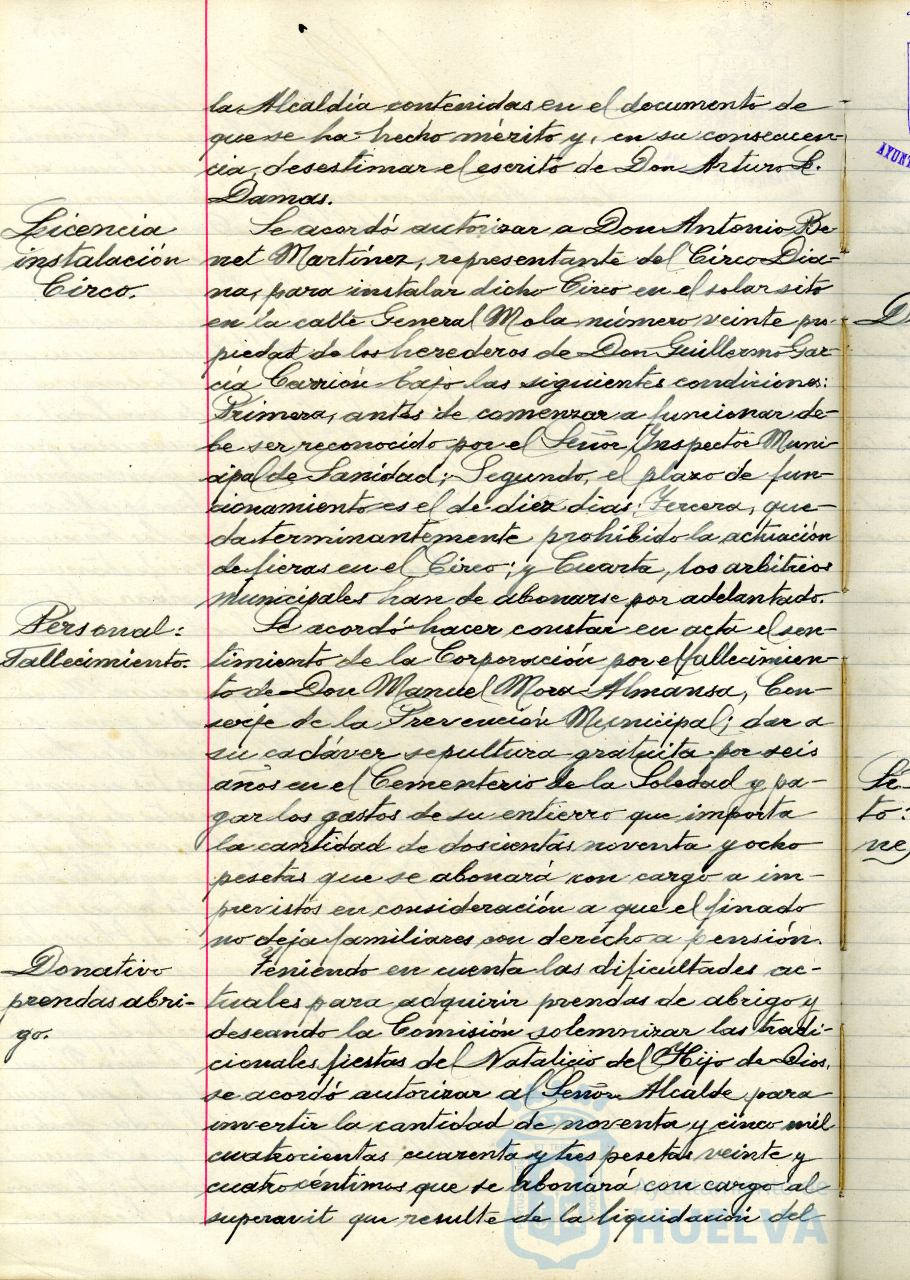 la Alcaldía contenidas en el documento de
que se ha hecho mérito y, en su consecuen-
cia, desestimar el escrito de Don Arturo L.
Damas.
Licencia
instalación
Circo.
Se acordó autorizar a Don Antonio Be
net Martínez, representante del Circo Dia-
na, para instalar dicho Circo en el solar sito
en la calle General Mola número veinte pro-
piedad de los herederos de Don Guillermo Gar-
cía Carrión bajo las siguientes condiciones:
Primera, antes de comenzar a funcionar de-
be ser reconocido por el Señor Inspector Muni-
cipal de Sanidad; Segundo, el plazo de fun-
cionamiento es el de diez dias; Tercera, que-
da terminantemente prohibido la actuación
de fieras en el Circo; y Cuarta, los arbitrios
municipales han de abonarse por adelantado.
Personal:
Fallecimiento.
Se acordó hacer constar en acta el sen-
timiento de la Corporación por el fallecimien-
to de Don Manuel Mora Almansa, Con-
serje de la Prevención Municipal; dar a
su cadáver sepultura gratuita por seis
años en el Cementerio de la Soledad y pa-
gar los gastos de su entierro que importa
la cantidad de doscientas noventa y ocho
pesetas que se abonará con cargo a im-
previstos en consideración a que el finado
no deja familiares con derecho a pensión.
Donativo
prendas abri-
go.
Teniendo en cuenta las dificultades ac-
tuales para adquirir prendas de abrigo y
deseando la Comisión solemnizar las tradi-
cionales fiestas del Natalicio del Hijo de Dios,
se acordó autorizar al Señor Alcalde para
invertir la cantidad de noventa y cinco mil
cuatrocientas cuarenta y tres pesetas veinte y
cuatro céntimos que se abonará con cargo al
superavit que resulte de la liquidación del
Ayuntamiento de
HUELVA
AYUN
to: